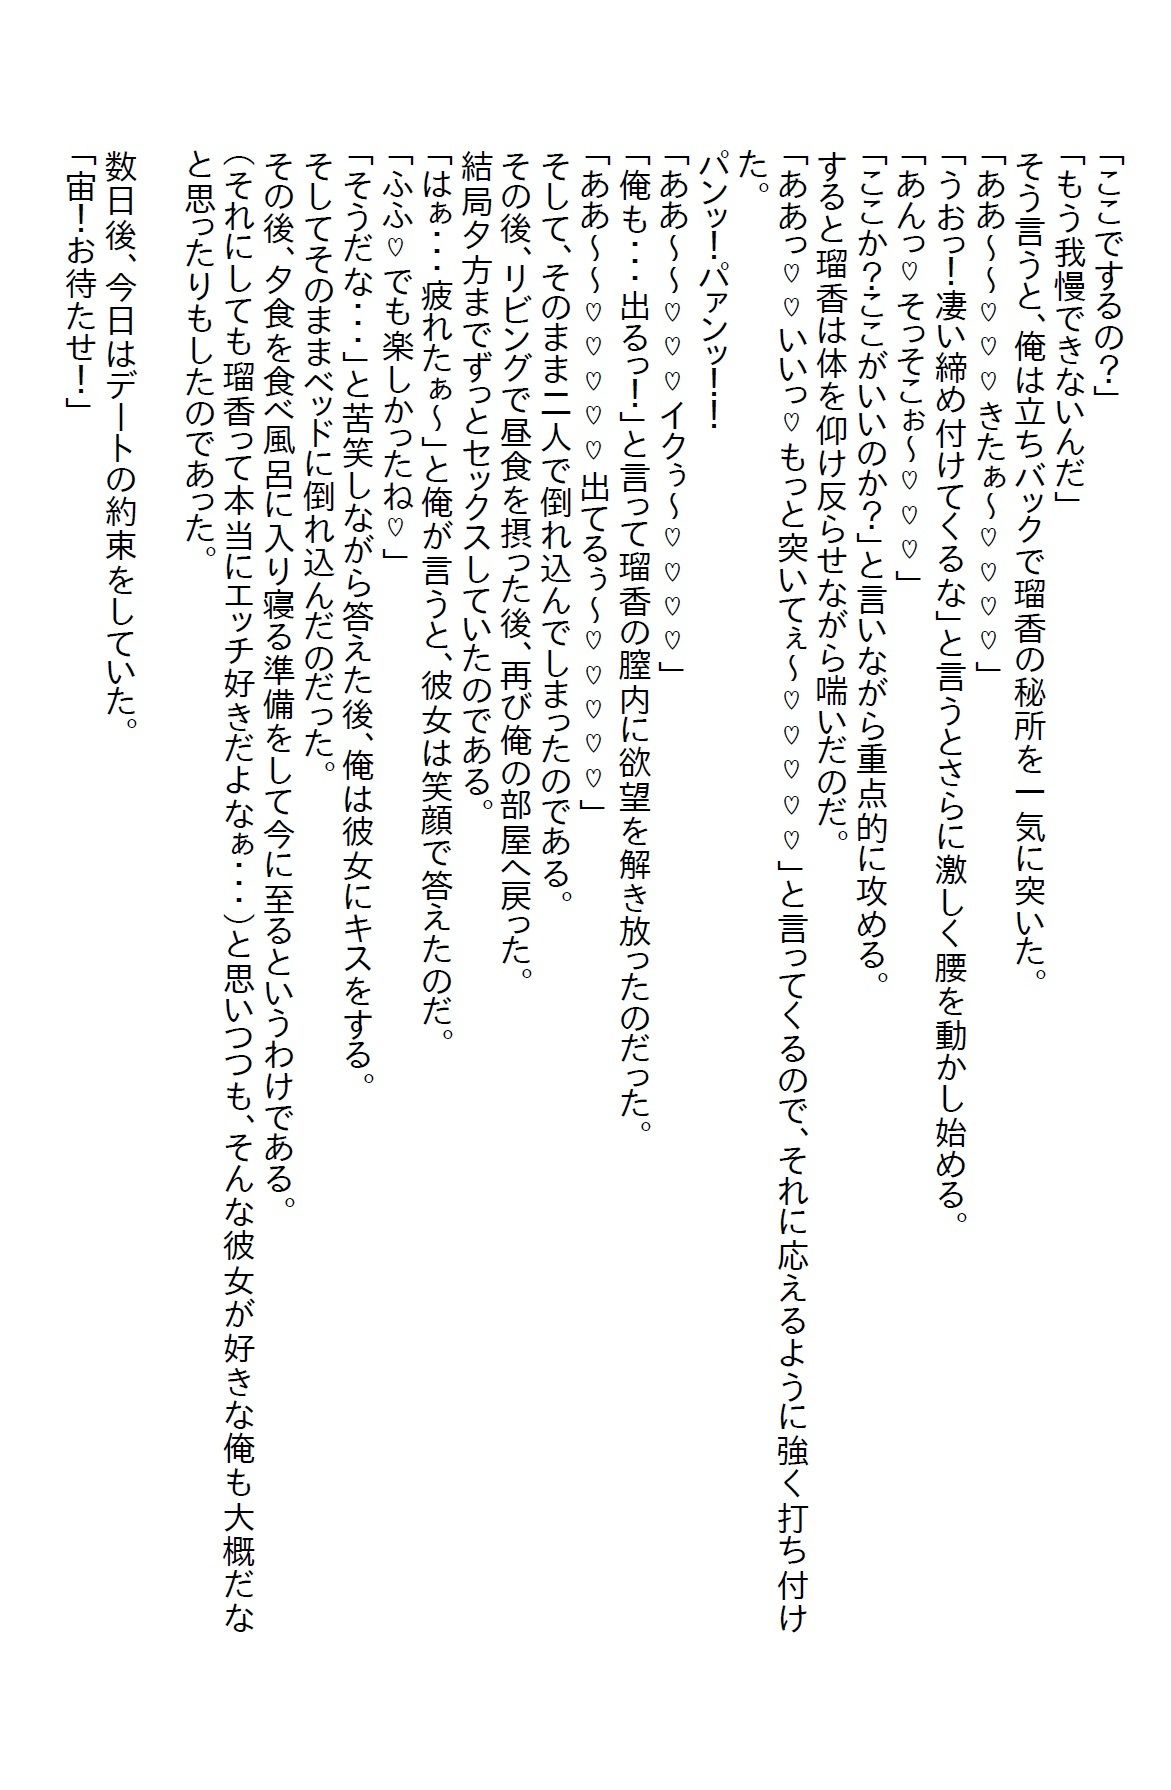 「ここでするの？」
「もう我慢できないんだ」
そう言うと、俺は立ちバックで瑠香の秘所を一気に突いた。
「ああ～～♡♡♡きたぁ～♡♡♡♡」
「うおっ！凄い締め付けてくるな」と言うとさらに激しく腰を動かし始める。
「あんっ♡そっそこぉ～♡♡♡」
「ここか？ここがいいのか？」と言いながら重点的に攻める。
すると瑠香は体を仰け反らせながら喘いだのだ。
「ああっ♡♡いいっ♡もっと突いてぇ～♡♡♡♡♡」と言ってくるので、それに応えるように強く打ち付け
た。
パンッ！パァンッ！！
「ああ～～♡♡♡イクぅ～♡♡♡♡」
「俺も・・・出るっ！」と言って瑠香の膣内に欲望を解き放ったのだった。
「ああ～～♡♡♡♡♡出てるぅ～♡♡♡♡♡」
そして、そのまま二人で倒れ込んでしまったのである。
その後、リビングで昼食を摂った後、再び俺の部屋へ戻った。
結局夕方までずっとセックスしていたのである。
「はぁ・・・疲れたぁ～」と俺が言うと、彼女は笑顔で答えたのだ。
「ふふ♡でも楽しかったね♡」
「そうだな・・・」と苦笑しながら答えた後、俺は彼女にキスをする。
そしてそのままベッドに倒れ込んだのだった。
その後、夕食を食べ風呂に入り寝る準備をして今に至るというわけである。
（それにしても瑠香って本当にエッチ好きだよなぁ・・・）と思いつつも、そんな彼女が好きな俺も大概だな
と思ったりもしたのであった。
数日後、今日はデートの約束をしていた。
「宙！お待たせ！」